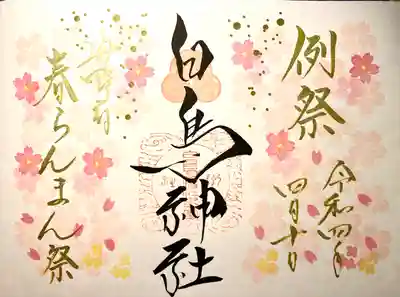 例祭
令和四年
四月十日
白鳥神社
春らんまん祭